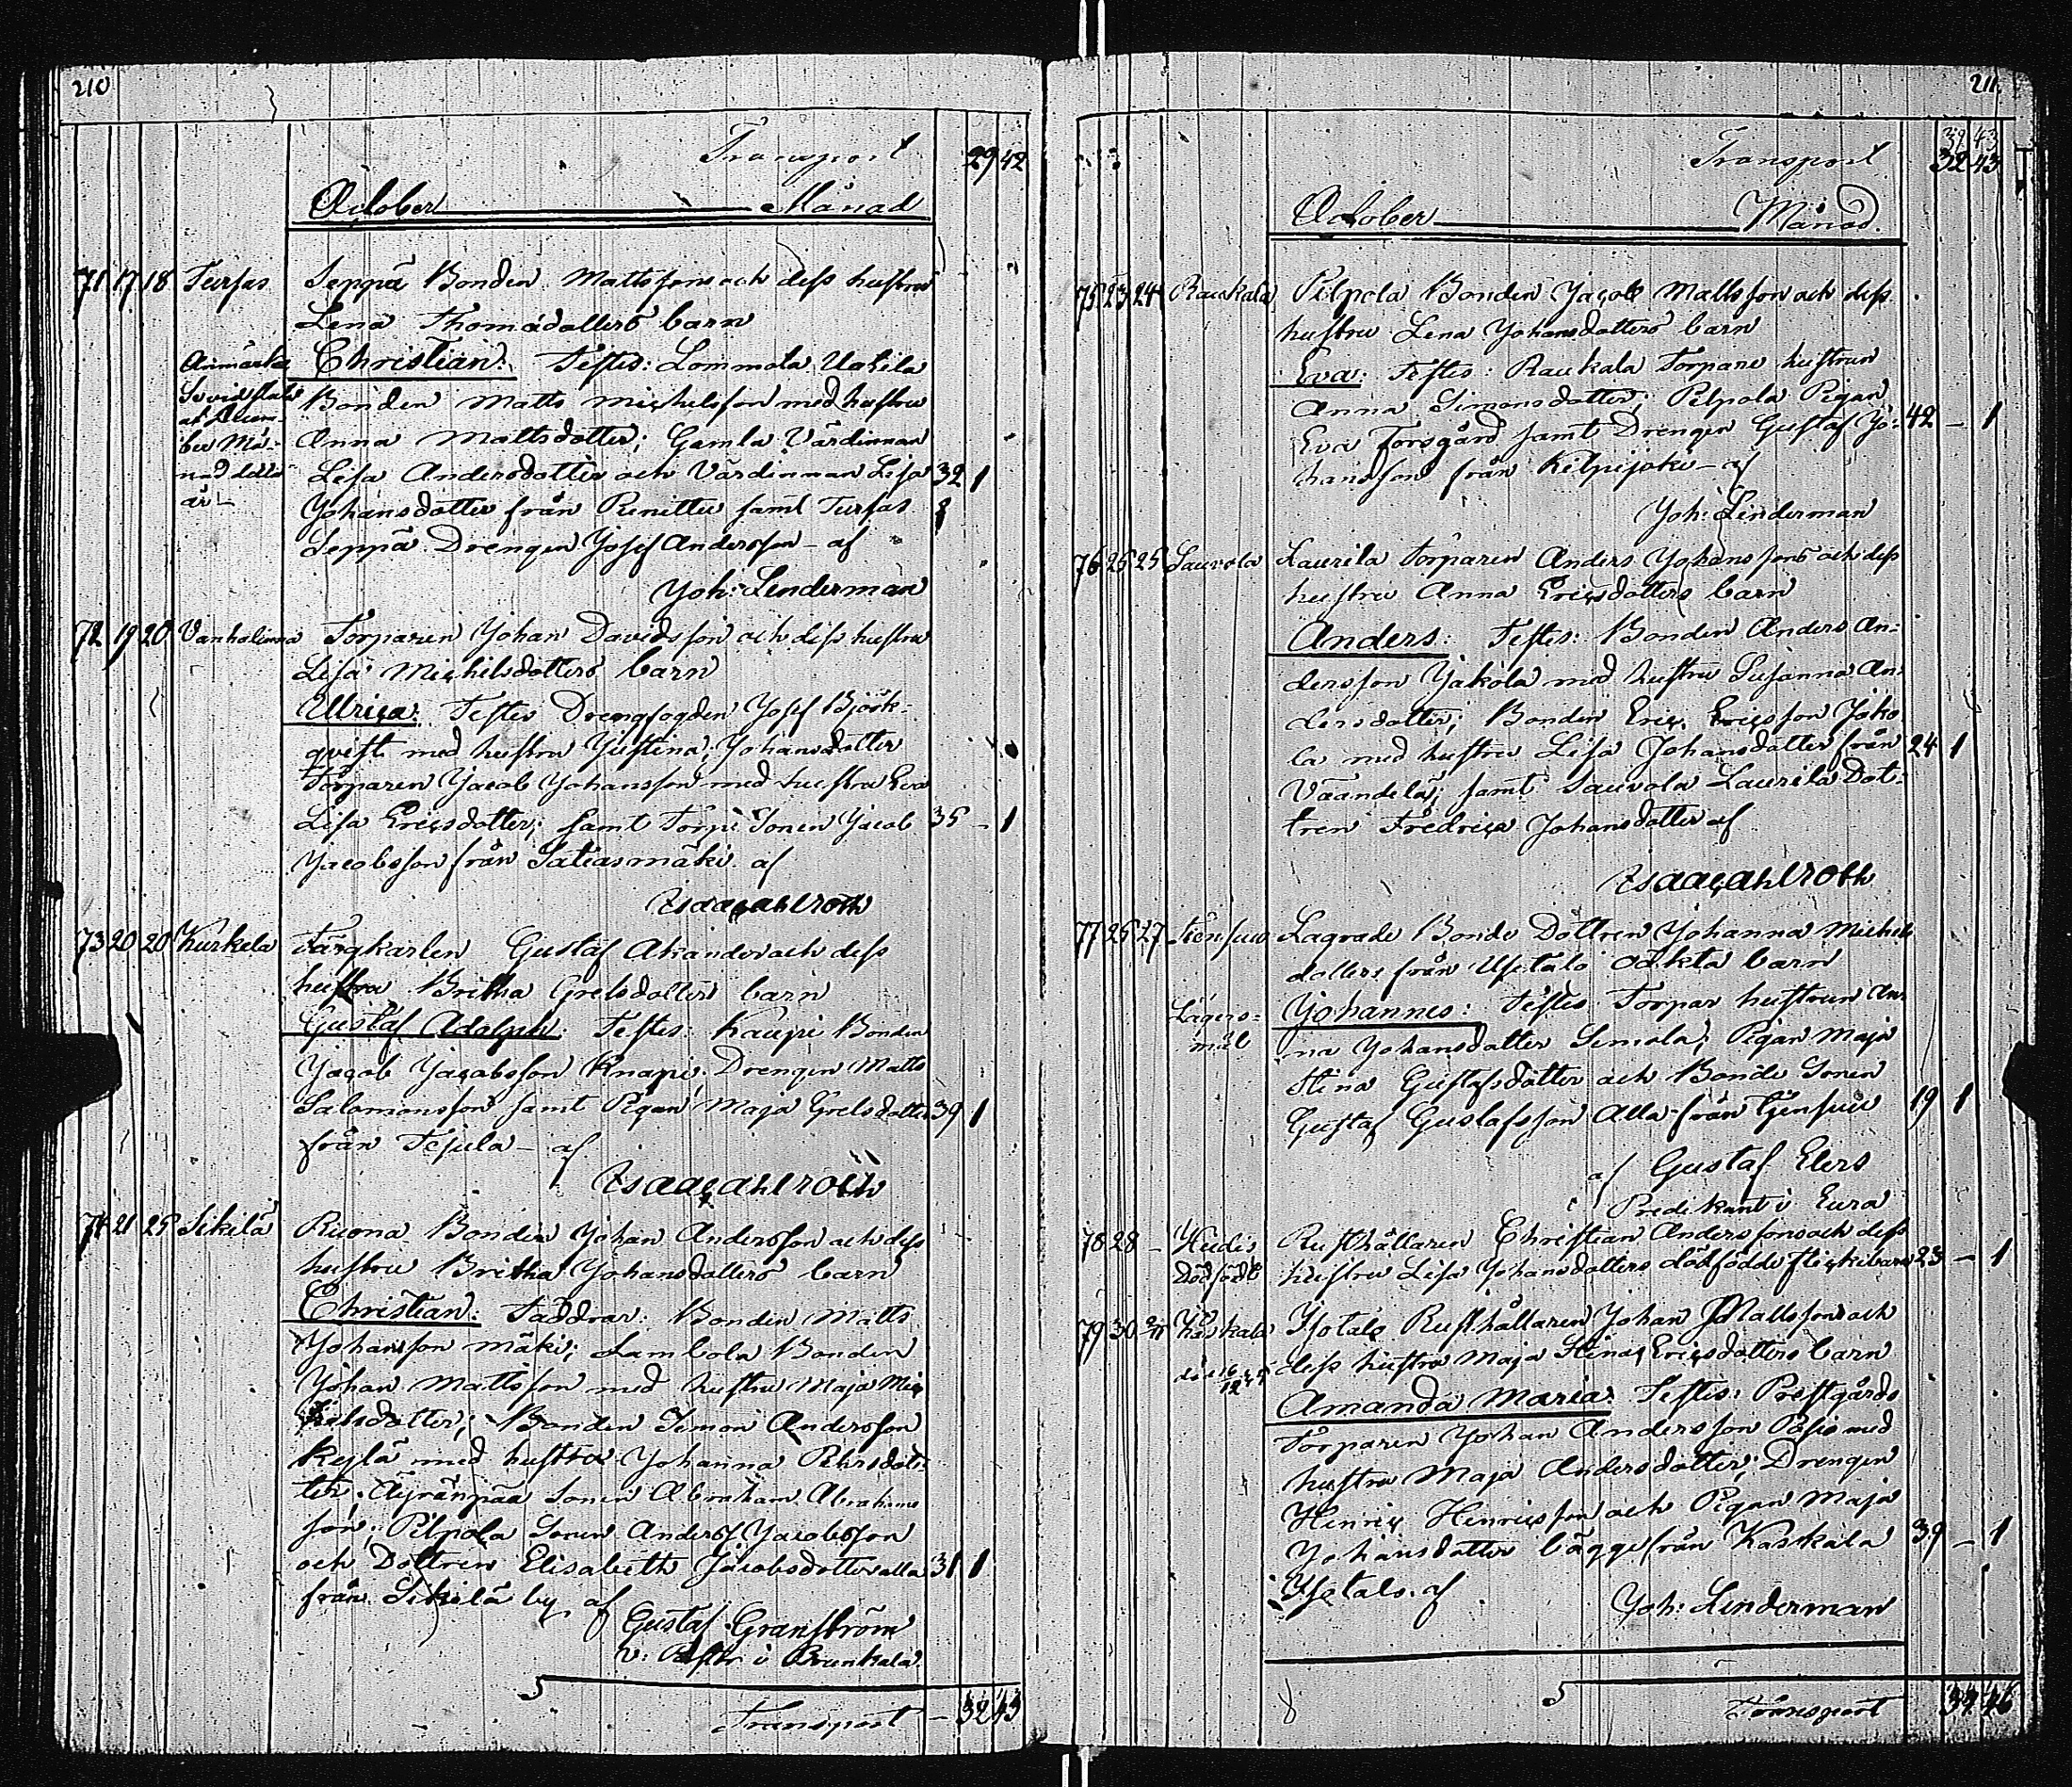 210
Transport 29 42
October Månad
71 17 18 Turfas Seppä Bonden Mattssons och dess hustru
Lena Thomædotters barn
Anmärke Christian: Testes: Lommola Uotila
Bonden Matts Michelsson med hustru
at Decem-
ber Må- Anna Mattsdotter; Gamla Värdinnan
nad detta Lisa Andersdotter och Värdinnan Lisa 32 1
år – Johansdotter från samt Turfas
Seppä Drengen Josef Andersson – af
Joh: Linderman
72 19 20 Vanhalinna Torparen Johan Davidsson och dess hustru
Lisa Michelsdotters barn
Ulrica: Testes Drengfogden Josef Björk-
qvist med hustru Justina Johansdotter
Torparen Jacob Johansson med hustru Eva
Lisa Ericsdotter; samt Torp: Sonen Jacob 35 – 1
Jacobsson från Satiasmäki af
Isaac Ahlroth
73 20 20 Kurkela Färgkarlen Gustaf Ahander och dess
hustru Britha Grelsdotters barn
Gustaf Adolph: Testes: Kaupi Bonden
Jacob Jacobsson Knapi; Drengen Matts
Salomonsson samt Pigan Maja Grelsdotter 39 1
från Tejula – af
Isaac Ahlroth
74 21 25 Sikilä Ruona Bonden Johan Andersson och dess
hustru Britha Johansdotters barn
Christian: Faddrar: Bonden Matts
Johansson mäki; Lambola Bonden
Johan Mattsson med hustru Maja Mic
helsdotter; Bonden Simon Andersson
Kejlä med hustru Johanna Pehrsdot-
ter; Äyränpää Sonen Abraham Abrahams
son; Pilpola Sonen Anders Jacobsson
och Dottren Elisabeth Jacobsdotter alla 31 1
från Sikilä by af
Gustaf Granström
v: Pastor i Brunkala
Transport – 32 43
211
39 43
Transport 32 43
October Månad.
75 23 24 Raukala Pilpola Bonden Jacob Mattsson och dess
hustru Lena Johansdotters barn
Eva: Testes: Raukala Torpare hustrun
Anna Simonsdotter; Pilpola Pigan
Eva Forsgård samt Drengen Gustaf Jo- 42 – 1
hansson från Kilpijoki – af
Joh: Linderman
76 25 25 Sauvola Laurila Torparen Anders Johanssons och dess
hustru Anna Ericsdotters barn
Anders: Testes: Bonden Anders An-
dersson Jakola med hustru Susanna An-
dersdotter; Bonden Eric Ericsson Joko
la med hustru Lisa Johansdotter från 24 1
Väändelä; samt Sauvola Laurila Dot-
tren Fredrica Johansdotter af
Isaac Ahlroth
77 25 27 Lagrade Bonde Dottren Johanna Michels
dotters från Ufitalo oäkta barn
Lägers- Johannes: Testes Torpar hustrun An-
mål na Johansdotter Simola; Pigan Maja
Stina Gustafsdotter och Bonde Sonen
Gustaf Gustafsson Alla från 19 1
af Gustaf Elers
Predikant i Eura
78 28 – Heidis Rusthållaren Christian Anderssons och dess
Dödfödt hustru Lisa Johansdotters dödfödde flickebarn 23 – 1
79 30 2/11 Kaskala Isotalo Rusthållaren Johan Mattssons och
dess hustru Maja Stina Ericsdotters barn
Amanda Maria: Testes: Prestgårds
Torparen Johan Andersson Pasio med
hustru Maja Andersdotter; Drengen
Henric Henricsson och Pigan Maja
Johansdotter bägge från Kaskala 39 – 1
Isotalo. af
Joh: Linderman
Transport 34 46